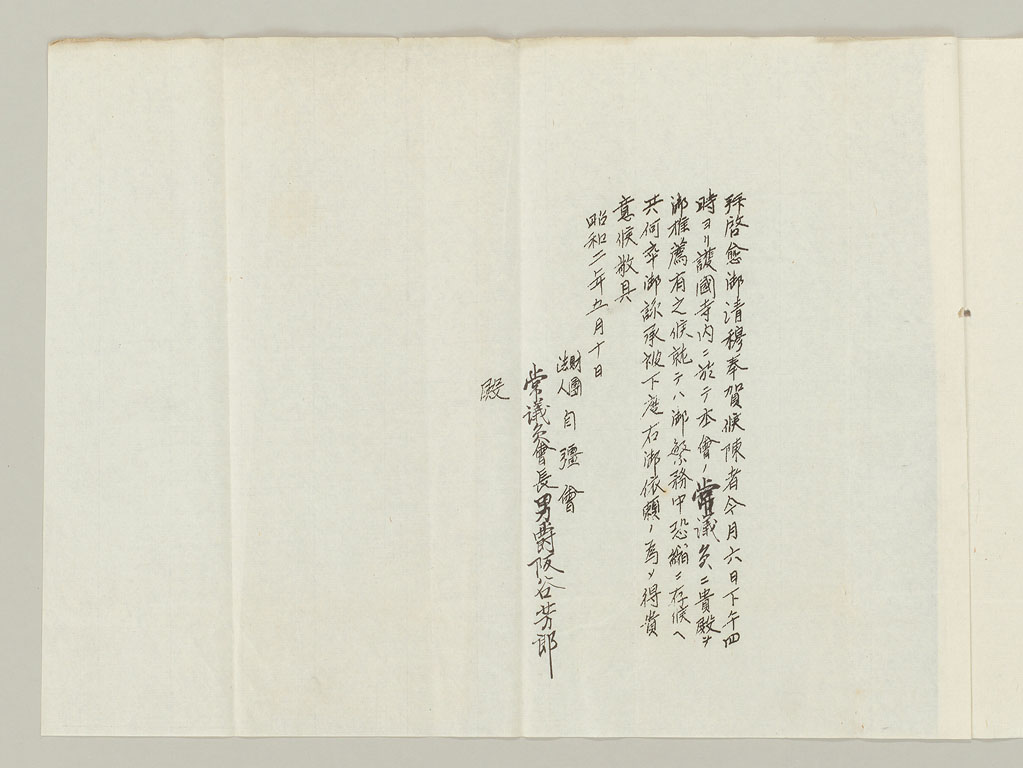 拜啓愈御清穆奉賀候陳者今月六日下午四
時ヨリ護國寺内ニ於テ本會ノ常議員ニ貴殿ヲ
御推薦有之候就テハ御繁務中恐縮ニ存候ヘ
共何卒御承被下度右御依頼ノ為メ得貴
意候敬具
昭和二年五月十日
財團法人自彊會
常議員會長男爵阪谷芳郎
殿